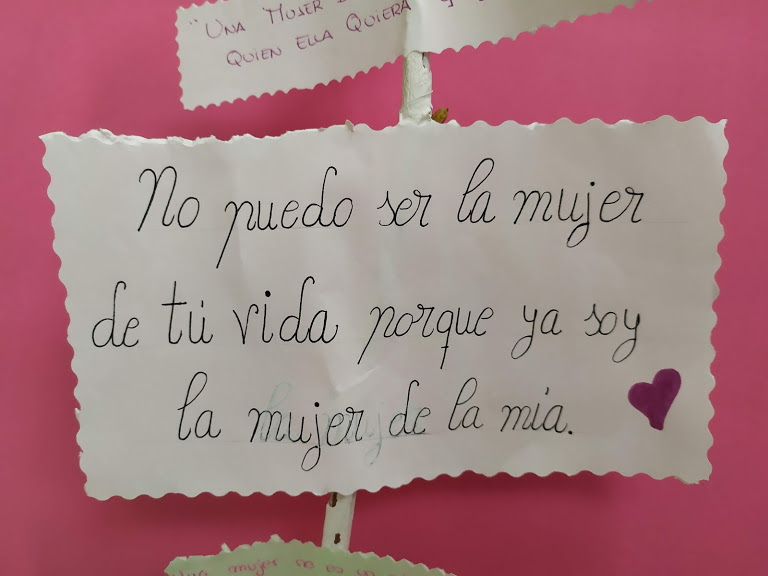 "UNA MUJER
QUIEN ELLA QUIERA
No puedo ser la mujer
de tú vida porque ya soy
la mujer de la mía.
mujer no es